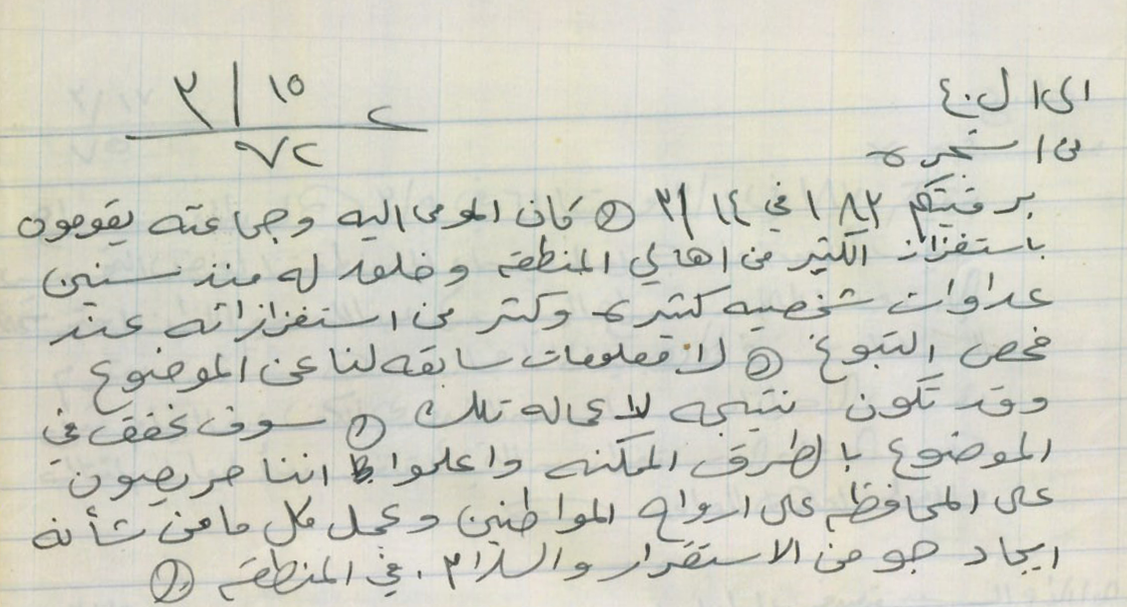 الى ال. ٤
١٥ / ٣
٧٢
من
برقيتكم ١٨٢ في ١٤ / ٣ (.) كان المومى اليه وجماعته يقومون
باستفزاز الكثير من اهالي المنطقه وخلقت له منذ سنين
عداوات شخصيه كثيره وكثر من استفزازاته عند
فحص التبوغ (.) لا معلومات سابقه لنا عن الموضوع
وقد تكون نتيجه لاعماله تلك (.) سوف نحقق في
الموضوع بالطرق الممكنه واعلموا اننا حريصون
على المحافظه على ارواح المواطنين وعمل كل ما من شأنه
ايجاد جو من الاستقرار والسلام في المنطقه (.)